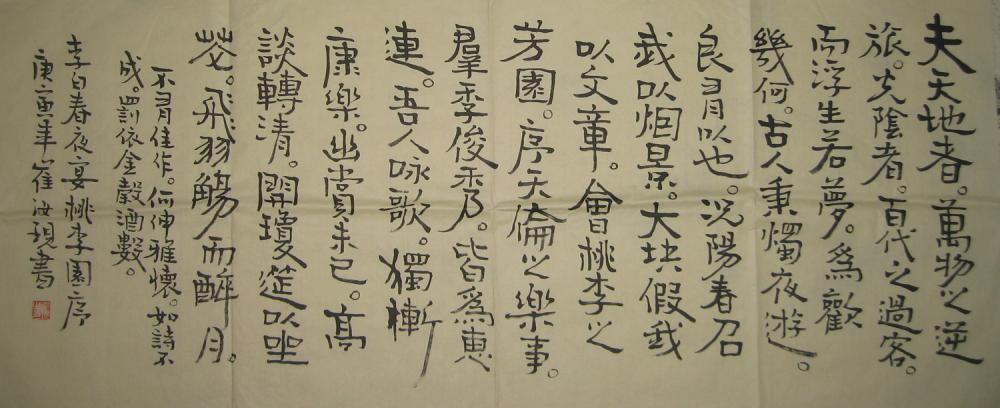 夫天地者。萬物之逆
旅。光陰者。百代之過客。
而浮生若夢。為歡
幾何。古人秉燭夜遊。
良有以也。況陽春召
我以烟景。大块假我
以文章。會桃李之
芳園。序天倫之樂事。
羣季俊秀。皆為惠
連。吾人咏歌。獨慚
康樂。幽賞未已。高
談轉清。開瓊筵以坐
花。飛羽觴而醉月。
不有佳作。何伸雅懷。如詩不
成。罰依金穀酒數。
李白春夜宴桃李園序
庚寅年崔汝現書